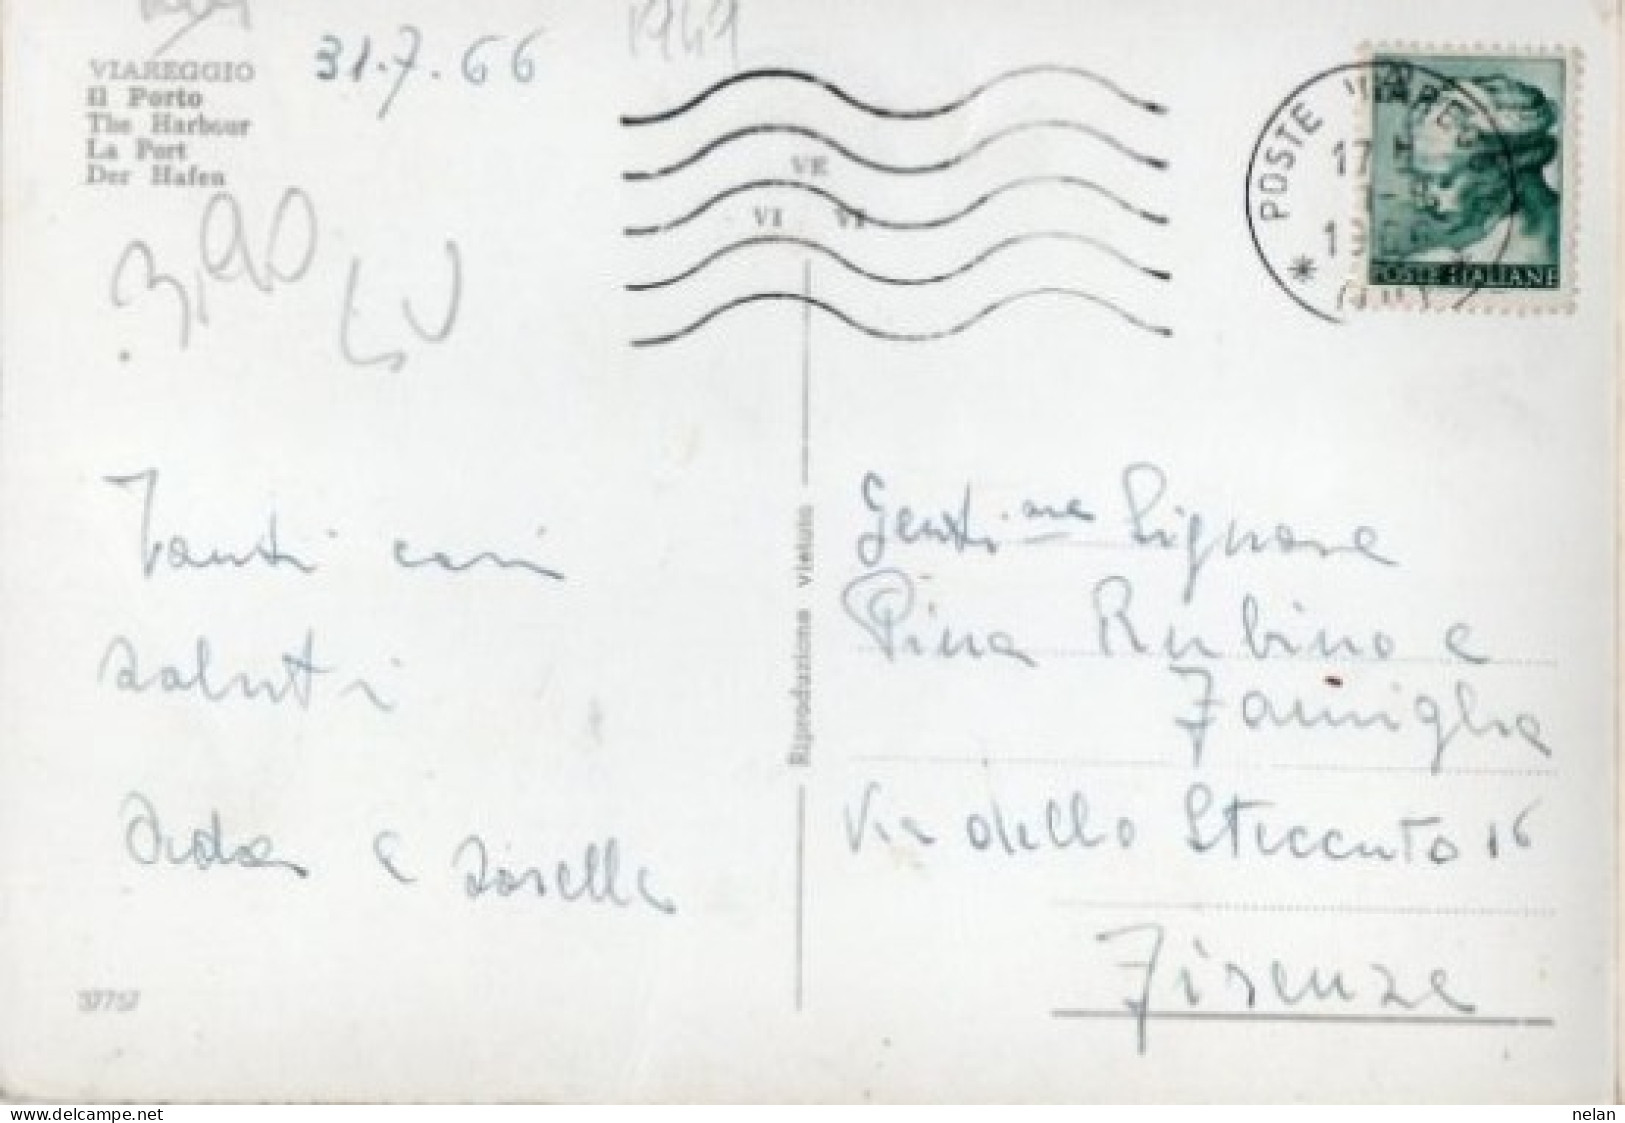 1949
VIAREGGIO
Il Porto
The Harbour
La Port
Der Hafen
31.7.66
VE
VI VI
POSTE VIAREGGIO
17
POSTE ITALIANE
Tanti cari
saluti
Aida e Sorella
37757
Riproduzione vietata
Genti.me Signore
Pina Rubino e
Famiglia
Via dello Steccuto 16
Firenze
https://www.delcampe.net
nelan